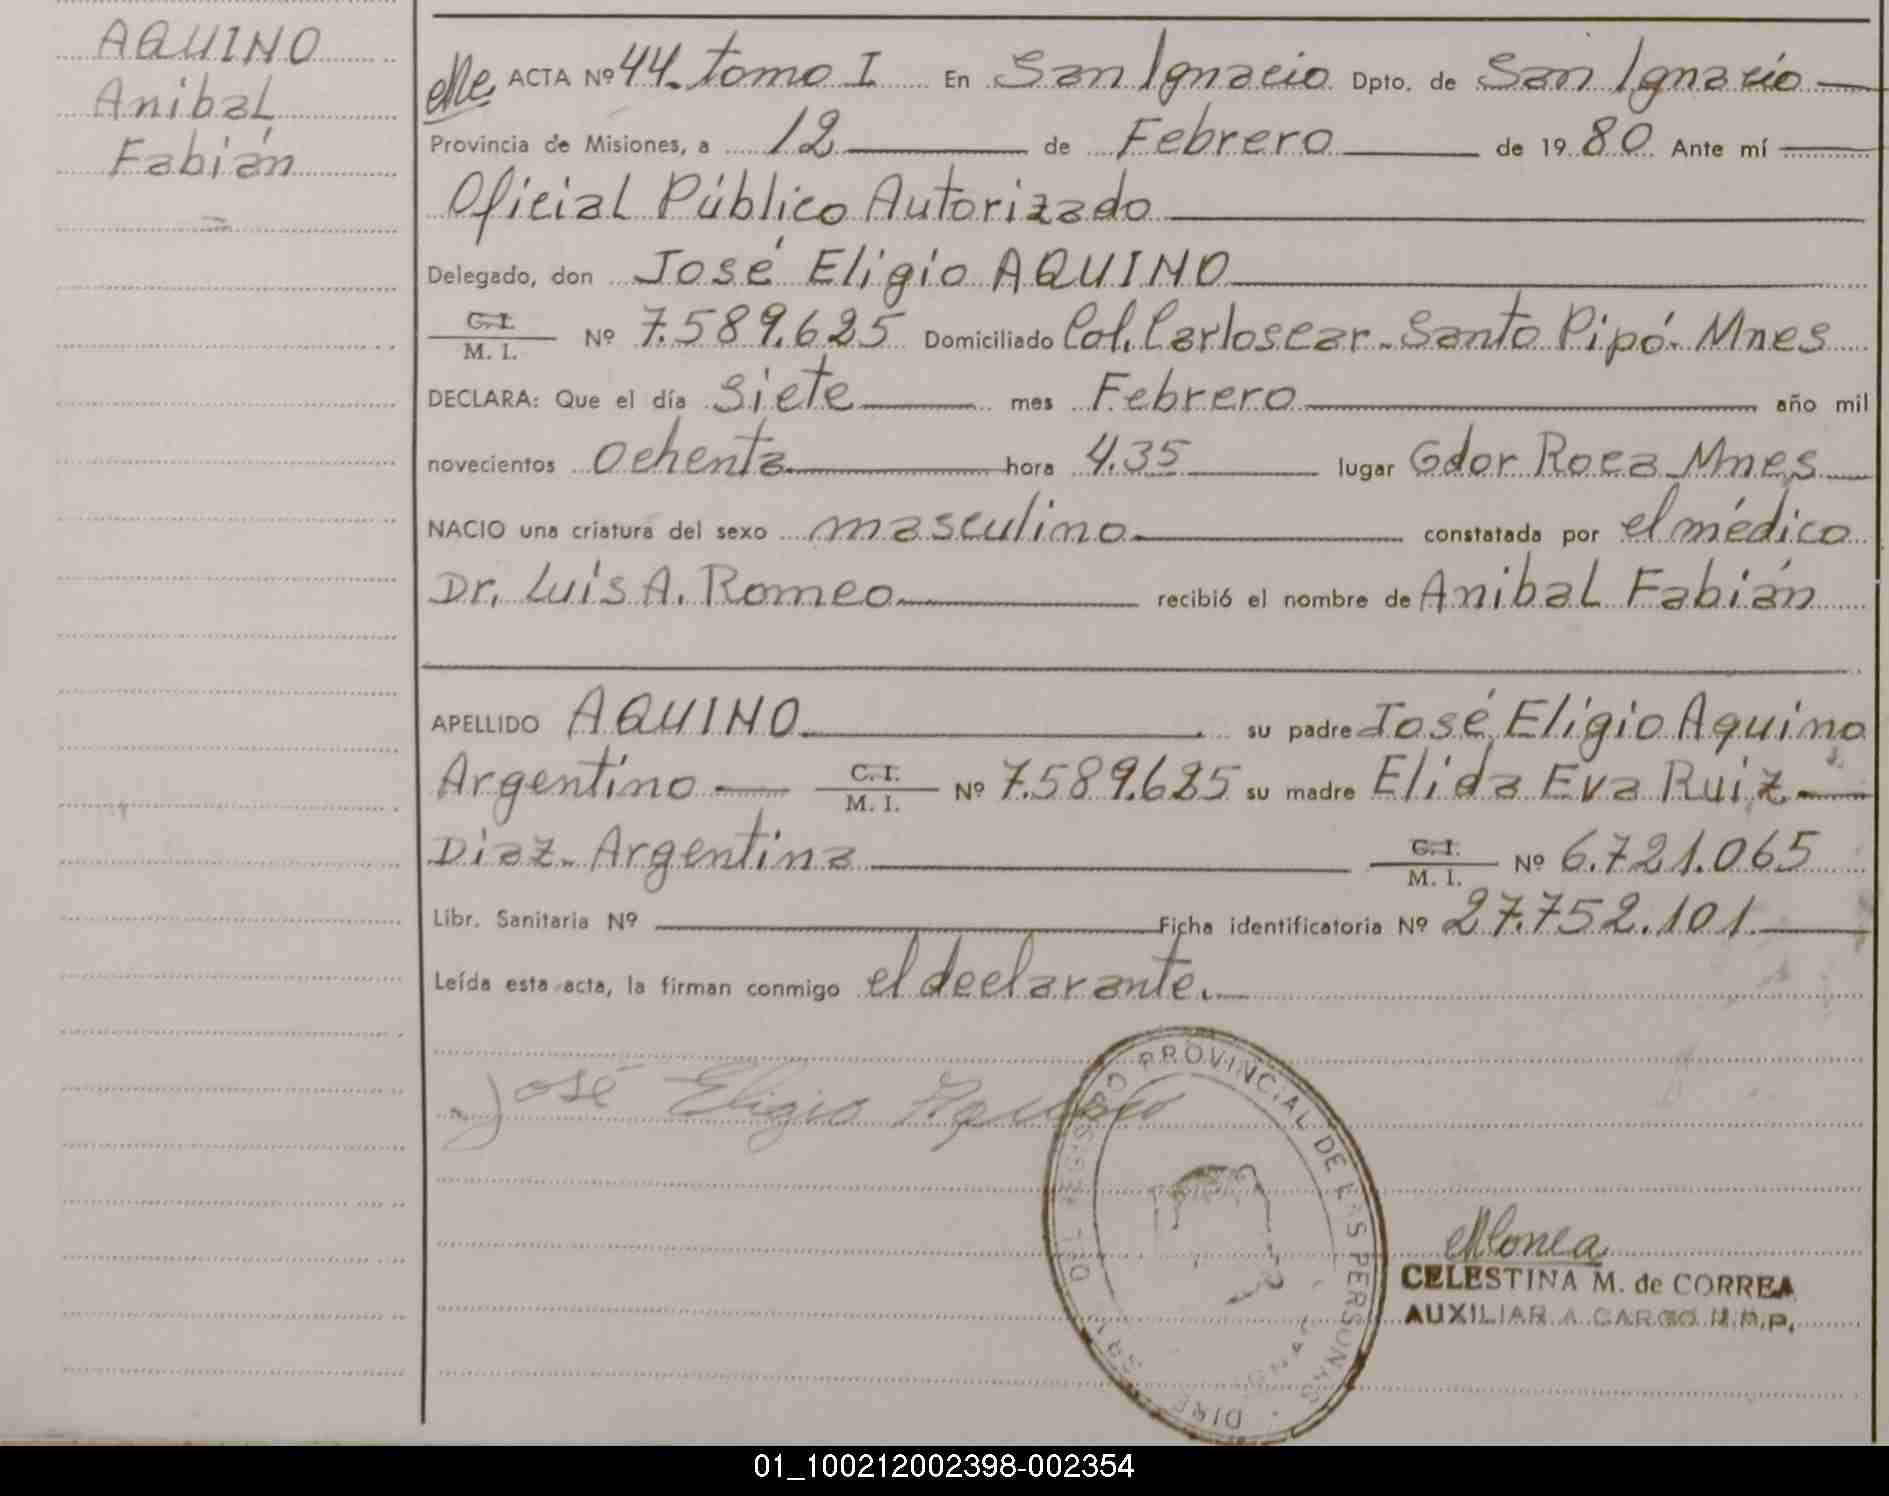 AQUINO
Anibal
Fabián
ACTA Nº 44. tomo I En San Ignacio Dpto. de San Ignacio
Provincia de Misiones, a 12 de Febrero de 1980 Ante mí
Oficial Público Autorizado
Delegado, don José Eligio AQUINO
C.I. M. I. Nº 7.589.625 Domiciliado Col. Carloscar - Santo Pipó - Mnes
DECLARA: Que el día Siete mes Febrero año mil
novecientos Ochenta hora 4.35 lugar Gdor Roca Mnes
NACIO una criatura del sexo masculino constatada por el médico
Dr. Luis A. Romeo recibió el nombre de Anibal Fabián
APELLIDO AQUINO su padre José Eligio Aquino
Argentino C.I. M. I. Nº 7.589.625 su madre Elida Eva Ruiz
Diaz - Argentina C.I. M. I. Nº 6.721.065
Libr. Sanitaria Nº Ficha identificatoria Nº 27.752.101
Leída esta acta, la firman conmigo el declarante.
José Eligio Aquino
PROVINCIAL DE LAS PERSONAS
CELESTINA M. de CORREA
AUXILIAR A CARGO
01_100212002398-002354